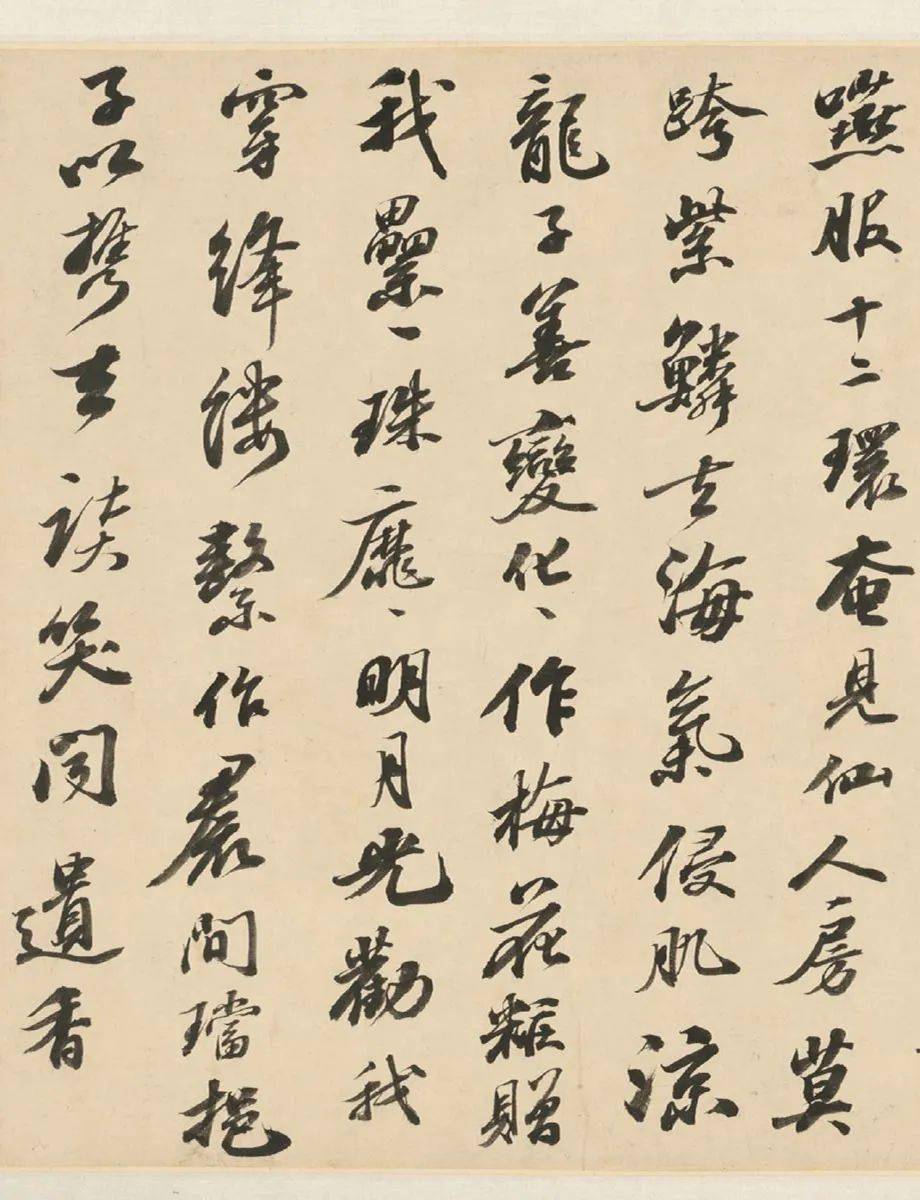 嚥服十二環奄見仙人房莫
跨紫鱗去海氣侵肌涼
龍子善變化、作梅花糚贈
我纍、珠靡、明月光勸我
穿絳縷繫作裠間璫挹
子以携去談笑聞遺香